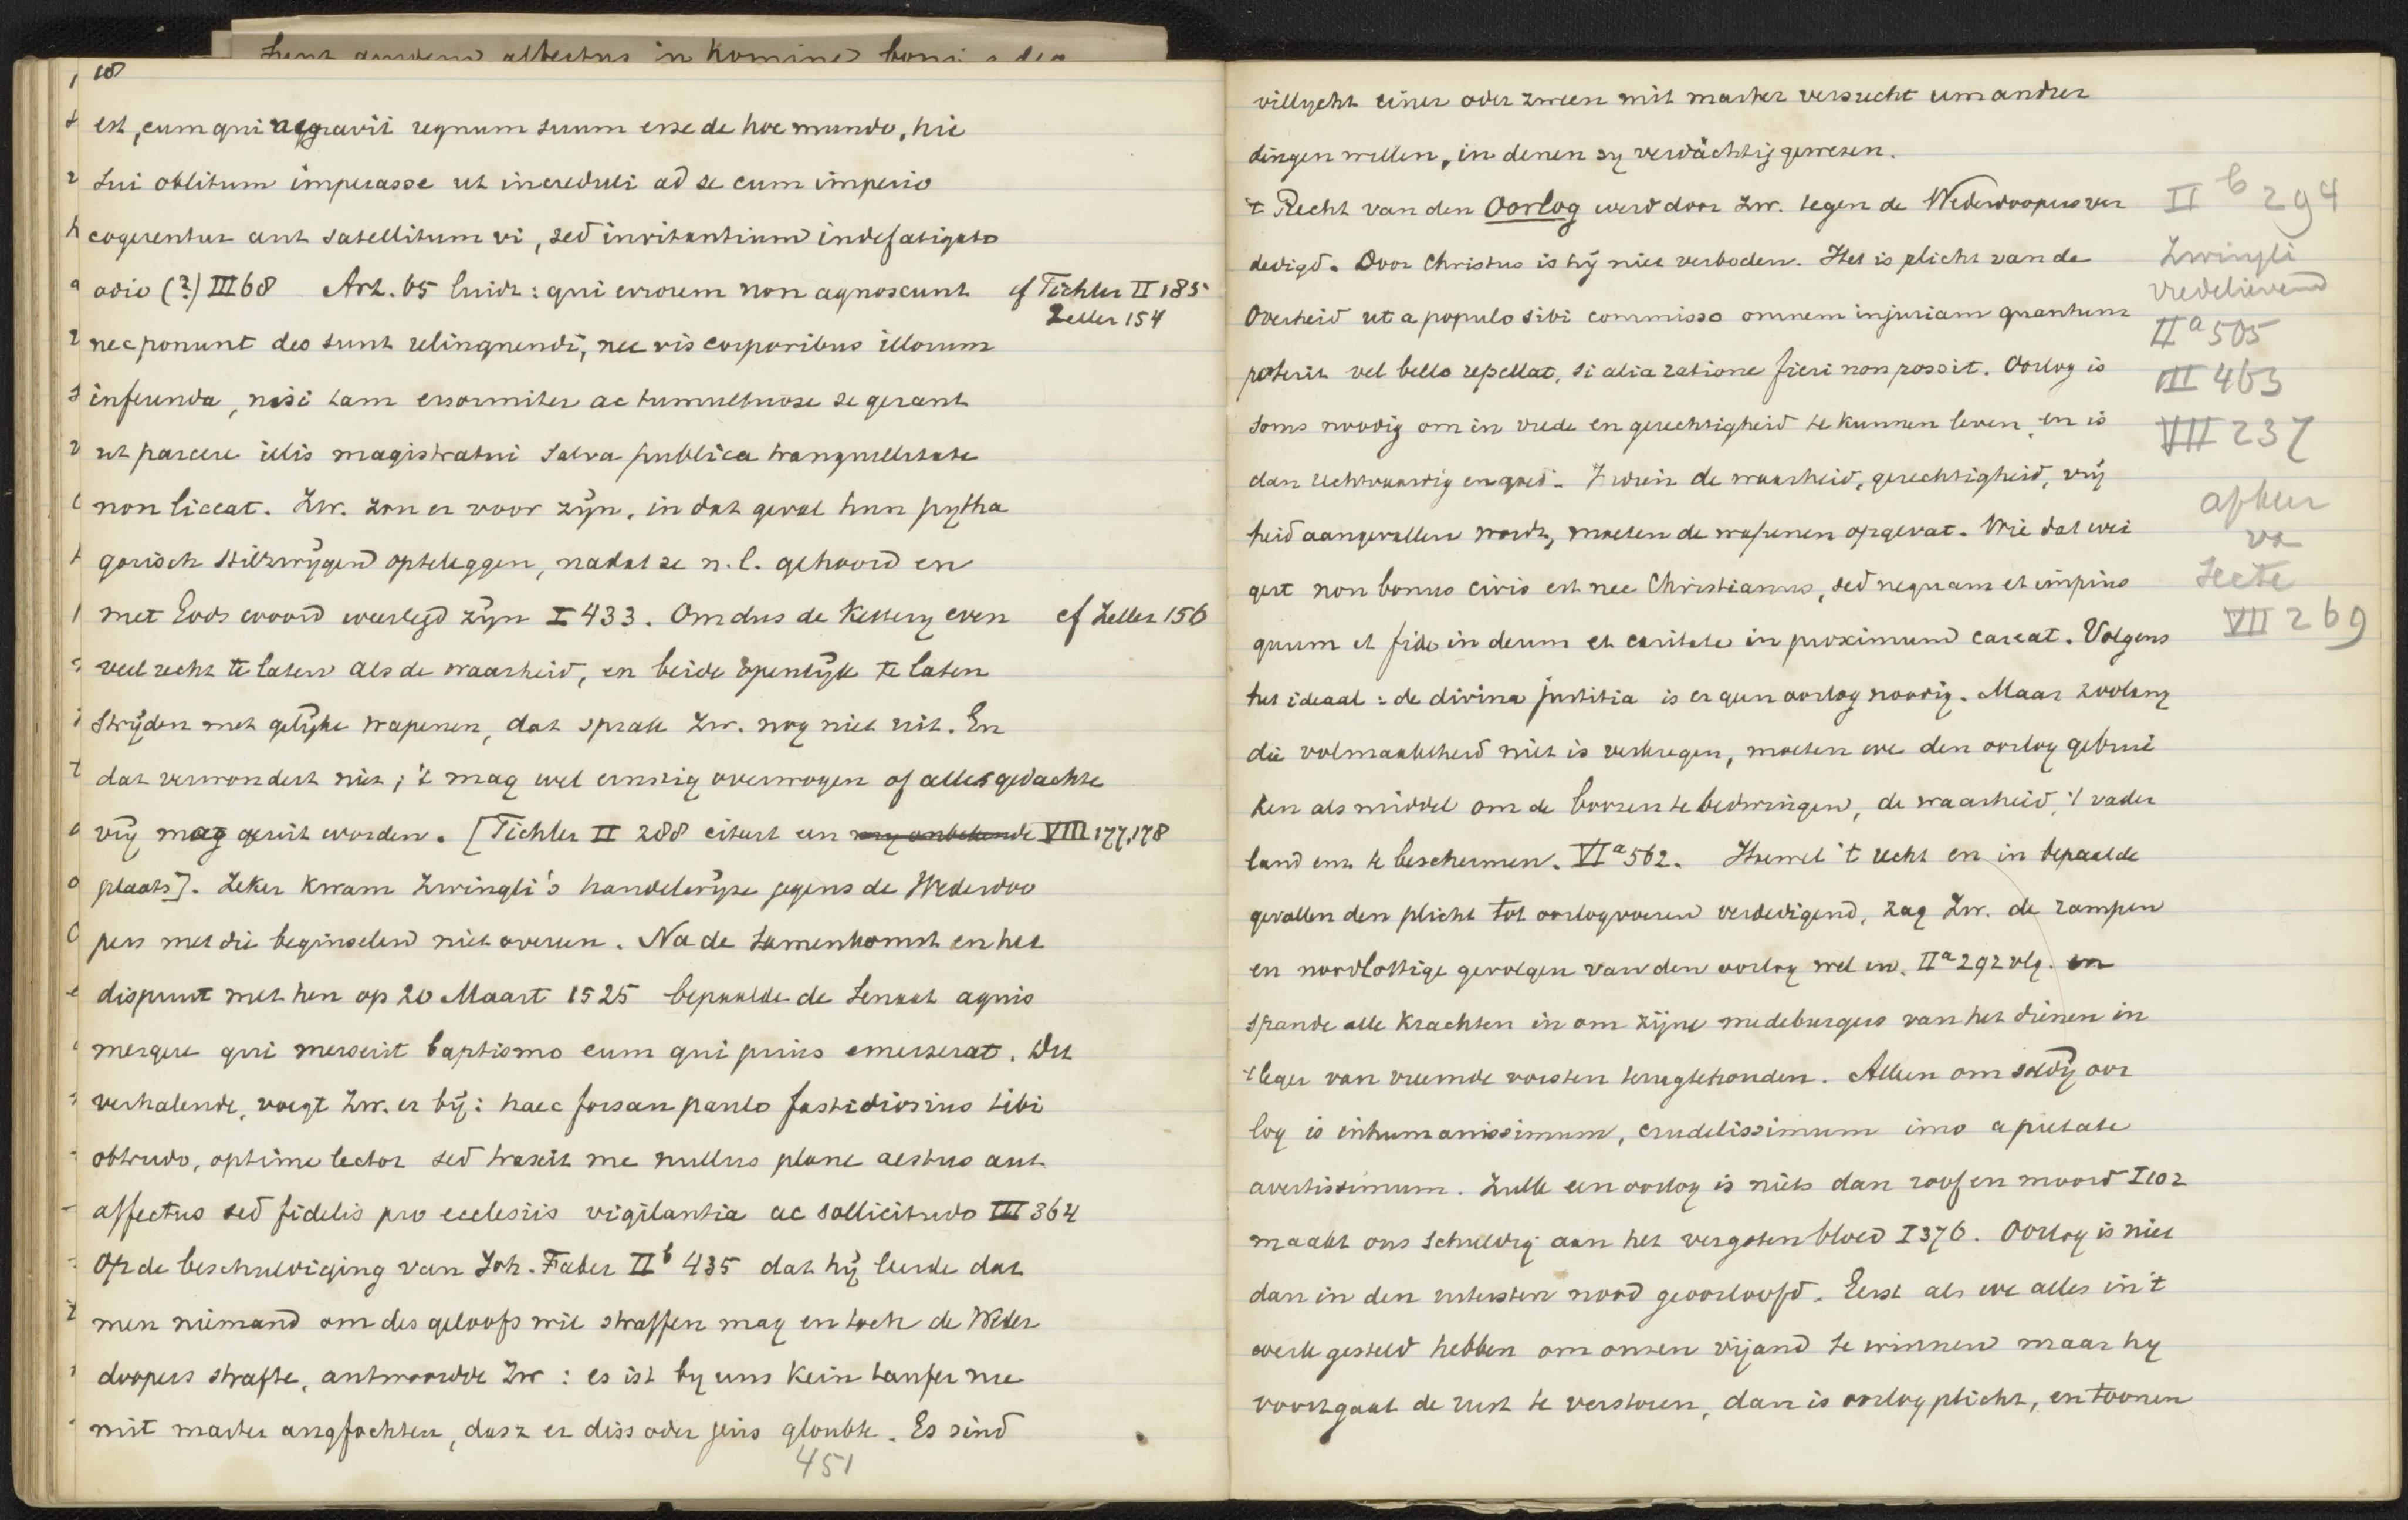 18
est, eum qui negravit regnum suum esse de hoc mundo, hic
sui oblitum imperasse ut increduli ad se cum imperio
cogerentur aut satellitum vi, sed invitantium indefatigato
odio (?) III 68 Art. 65 luidt: qui errorem non agnoscunt cf Tichler II 185
Zeller 154
nec ponunt deo sunt relinquendi, nec vis corporibus illorum
inferenda, nisi tam enormiter ac tumultuose se gerant
ut parcere illis magistratui salva publica tranquillitate
non liceat. Zw. zou er voor zijn, in dat geval hun pytha
gorisch stilzwijgend opteleggen, nadat ze n.l. gehoord en
met Gods woord weerlegd zijn I 433. Om dus de Kettery even cf Zeller 156
veel recht te laten als de waarheid, en beide openlijk te laten
strijden met gelijke wapenen, dat sprak Zw. nog niet uit. En
dat verwondert niet; 't mag wel ernstig overwogen of alles gedachte
vrij mag geuit worden. [Tichler II 288 citeert een mij onbekende VIII 177, 178
plaats]. Zeker kwam Zwingli's handelwijze jegens de Wederdoo
pers met die beginselen niet overeen. Na de samenkomst en het
dispuut met hen op 20 Maart 1525 bepaalde de Senaat aquis
mergere qui merserit baptismo eum qui prius emerserat. Dit
verhalende, voegt Zw. er bij: haec forsan paulo fastidiosius tibi
obtrudo, optime lector sed traxit me nullus plane aestus aut
affectus sed fidelis pro ecclesiis vigilantia ac sollicitudo III 364
Op de beschuldiging van Joh. Faber IIb 435 dat hij leerde dat
men niemand om des geloofs wil straffen mag en toch de Weder
doopers strafte, antwoordde Zw: es ist by uns kein taufer nie
mit marter angfochten, dasz er diss oder jens gloubte. Es sind
451
villycht einer oder zween mit marter versucht um andrer
dingen willen, in denen sy verdächtig gewesen.
't Recht van den Oorlog werd door Zw. tegen de Wederdoopers ver
dedigd. Door Christus is hij niet verboden. Het is plicht van de
Overheid ut a populo sibi commisso omnem injuriam quantum
poterit vel bello repellat, si alia ratione fieri non possit. Oorlog is
soms noodig om in vrede en gerechtigheid te kunnen leven, en is
dan rechtvaardig en goed. Indien de waarheid, gerechtigheid, vrij
heid aangevallen wordt, moeten de wapenen opgevat. Wie dat wei
gert non bonus civis est nec Christianus, sed nequam et impius
quum et fide in deum et caritate in proximum careat. Volgens
het ideaal: de divina justitia is er geen oorlog noodig. Maar zoolang
die volmaaktheid niet is verkregen, moeten we den oorlog gebrui
ken als middel om de boozen te bedwingen, de waarheid, 't vader
land enz te beschermen. VIa 562. Hoewel 't recht en in bepaalde
gevallen den plicht tot oorlogvoeren verdedigend, zag Zw. de rampen
en noodlottige gevolgen van den oorlog wel in. IIa 292 vlg. en
spande alle krachten in om zijne medeburgers van het dienen in
't leger van vreemde vorsten terugtehouden. Alleen om soldij oor
log is inhumanissimum, crudelissimum imo a pietate
avertissimum. Zulk een oorlog is niets dan roof en moord I 102
maakt ons schuldig aan het vergoten bloed I 376. Oorlog is niet
dan in den uitersten nood geoorloofd. Eerst als we alles in 't
werk gesteld hebben om onzen vijand te winnen maar hy
voortgaat de rust te verstoren, dan is oorlog plicht, en toonen
II b 294
Zwingli
vredelievend
IIa 505
III 463
VII 237
afkeer
va
Secte
VII 269